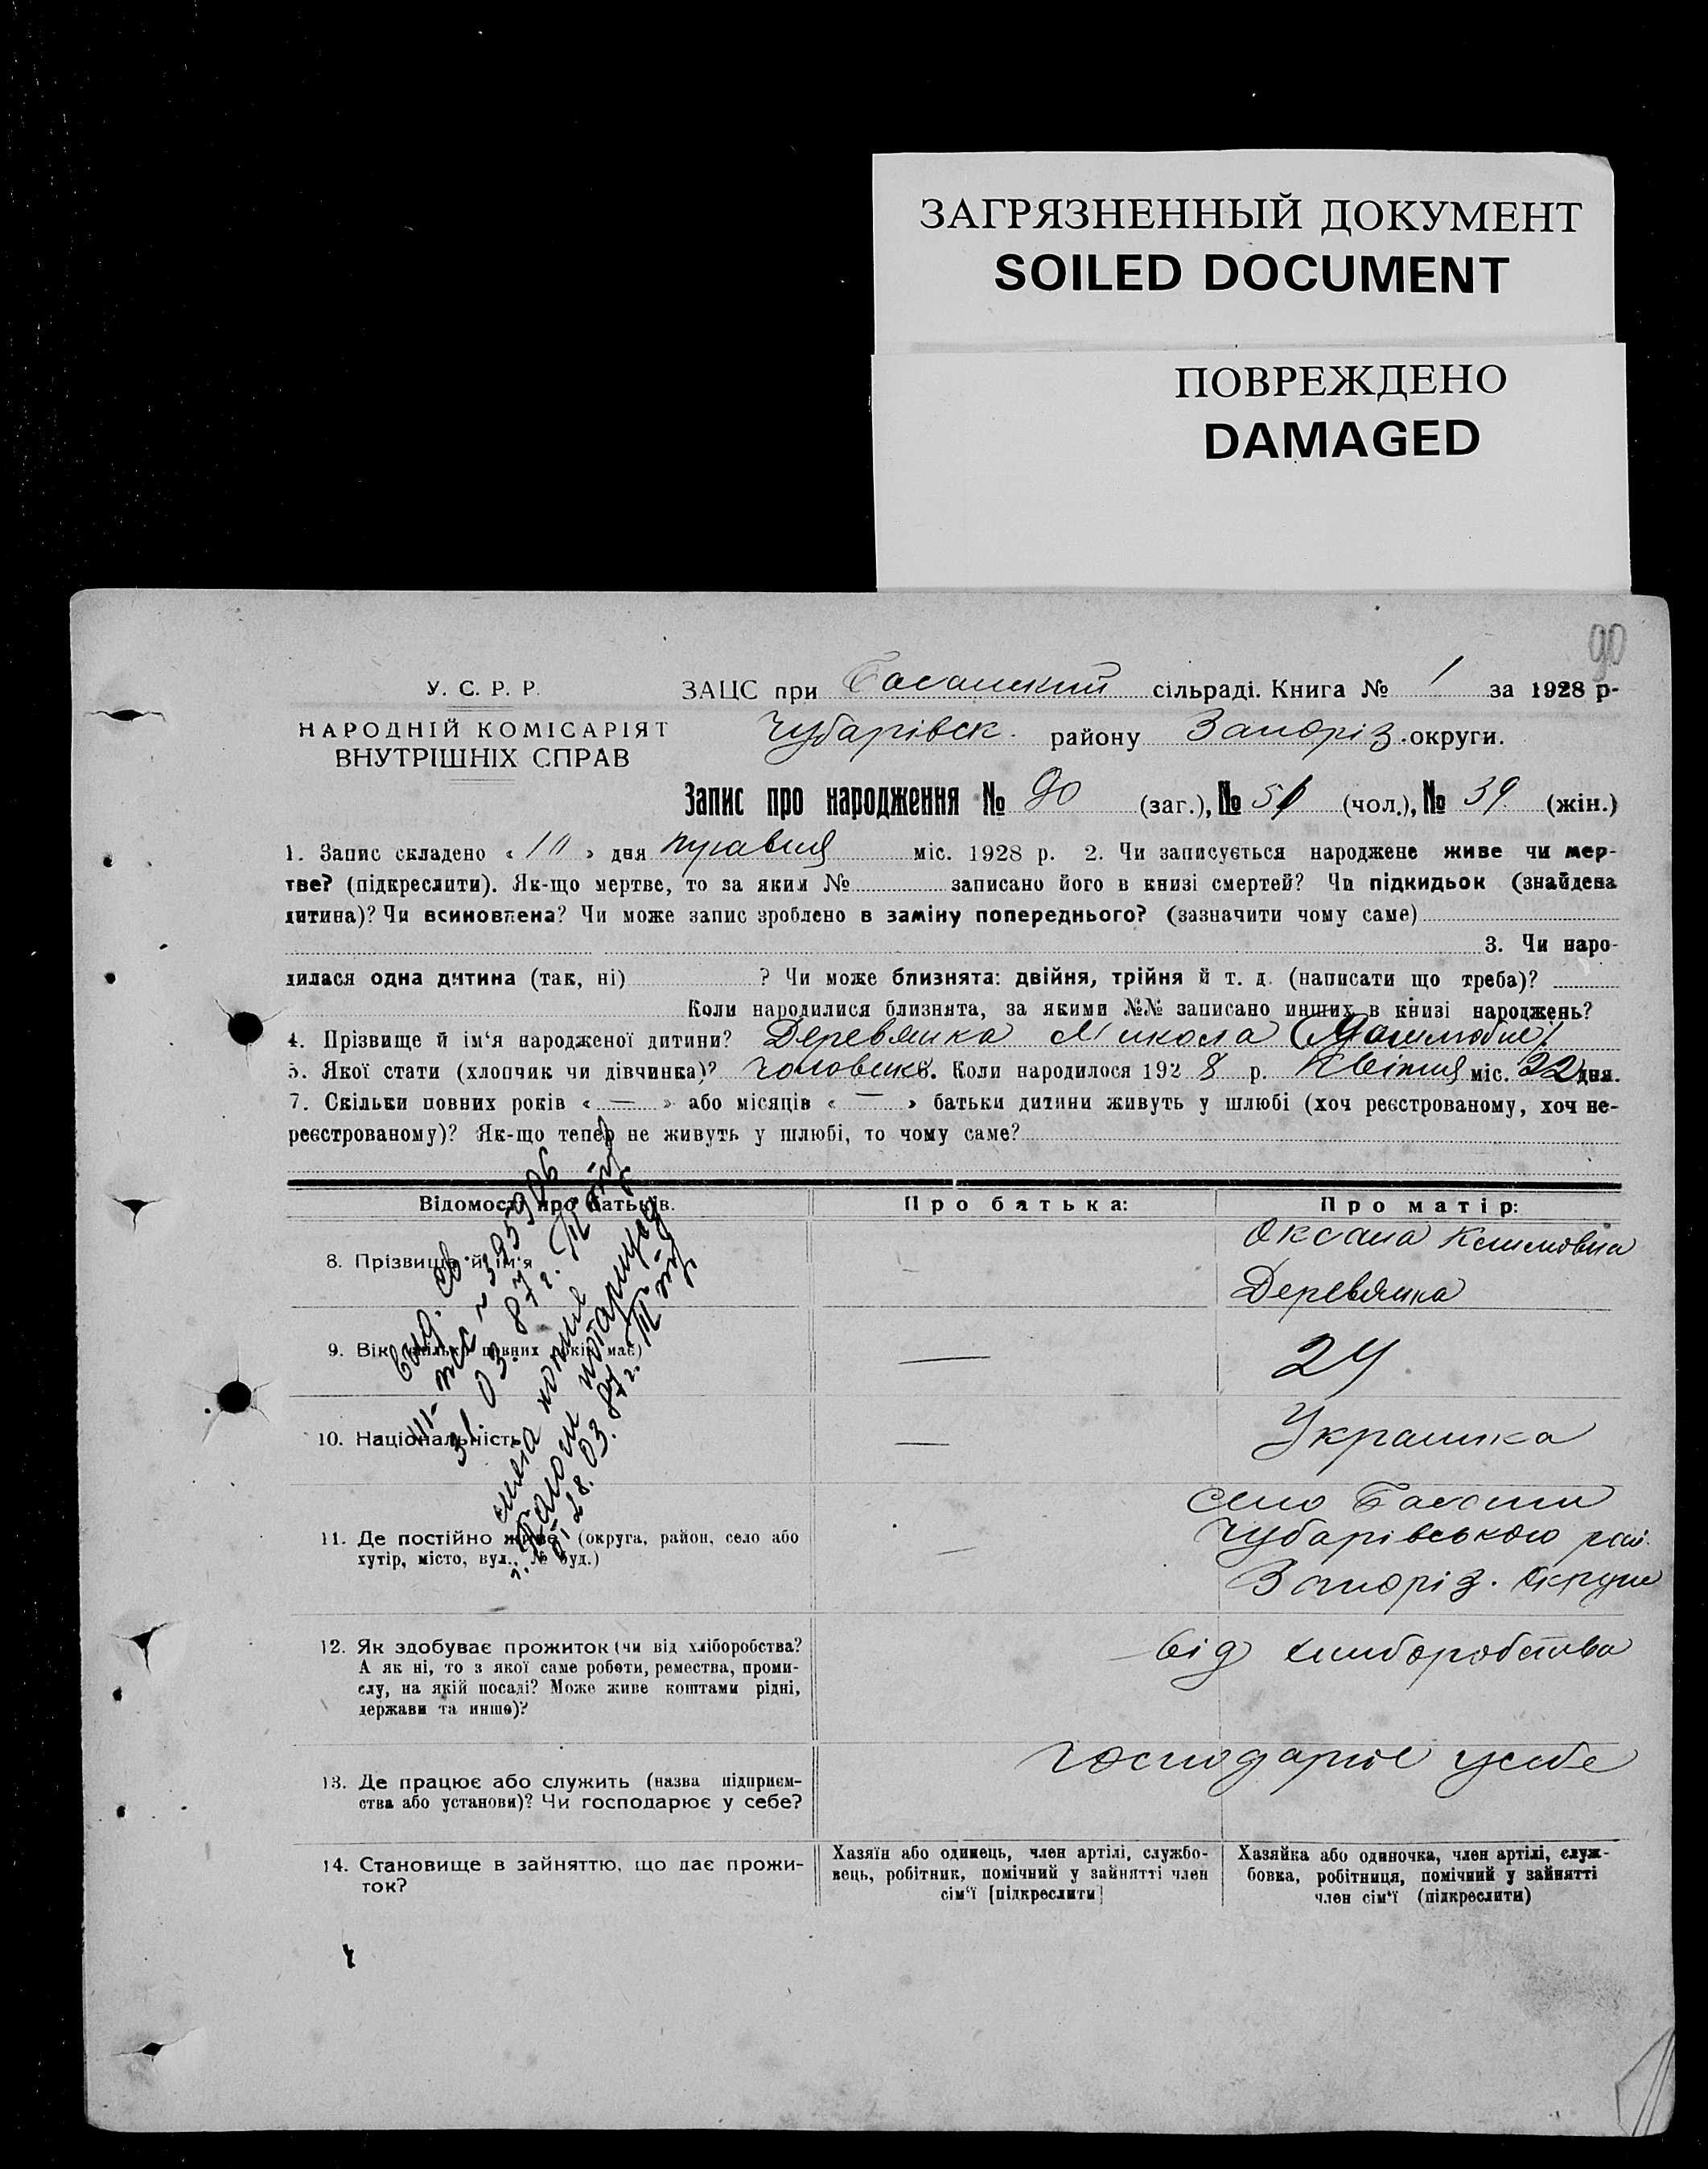 ЗАГРЯЗНЕННЫЙ ДОКУМЕНТ
SOILED DOCUMENT
ПОВРЕЖДЕНО
DAMAGED
90
У. С. Р. Р.
НАРОДНІЙ КОМІСАРІЯТ
ВНУТРІШНІХ СПРАВ
ЗАЦС при Басанський сільраді. Книга № 1 за 1928 р-
Чубарівськ. району Запоріз. округи.
Запис про народження № 90 (заг.), № 51 (чол.), № 39. (жін.)
1. Запис складено « 10 » дня травня міс. 1928 р. 2. Чи записується народжене живе чи мер-
тве? (підкреслити). Як-що мертве, то за яким № записано його в книзі смертей? Чи підкидьок (знайдена
дитина)? Чи всиновлена? Чи може запис зроблено в заміну попереднього? (зазначити чому саме)
3. Чи наро-
дилася одна дитина (так, ні) ? Чи може близнята: двійня, трійня й т. д. (написати що треба)?
Коли народилися близнята, за якими №№ записано инших в книзі народжень?
4. Прізвище й ім'я народженої дитини? Деревянка Микола
5. Якої стати (хлопчик чи дівчинка)? чоловік 6. Коли народилося 1928 р. Квітня міс. 22 дня.
7. Скільки повних років « — » або місяців « — » батьки дитини живуть у шлюбі (хоч реєстрованому, хоч не-
реєстрованому)? Як-що тепер не живуть у шлюбі, то чому саме?
Відомості про батьків. Про батька: Про матір:
8. Прізвище й ім'я — Оксана
Деревянка
9. Вік (скільки повних років має) — 24
10. Національність — Українка
11. Де постійно живе (округа, район, село або
хутір, місто, вул., № буд.) — село Басани
Чубарівського рай.
Запоріз. округи
12. Як здобуває прожиток (чи від хліборобства?
А як ні, то з якої саме роботи, ремества, проми-
слу, на якій посаді? Може живе коштами рідні,
держави та инше)?
від хліборобства
13. Де працює або служить (назва підприєм-
ства або установи)? Чи господарює у себе?
господарює у себе
14. Становище в зайняттю, що дає прожи-
ток?
Хазяїн або одинець, член артілі, службо-
вець, робітник, помічний у зайнятті член
сім'ї [підкреслити]
Хазяйка або одиночка, член артілі, служ-
бовка, робітниця, помічний у зайнятті
член сім'ї (підкреслити)
выд. св.
III-ЖС № 395906
31. 03. 87 г.
снята копия
28. 03. 87 г.